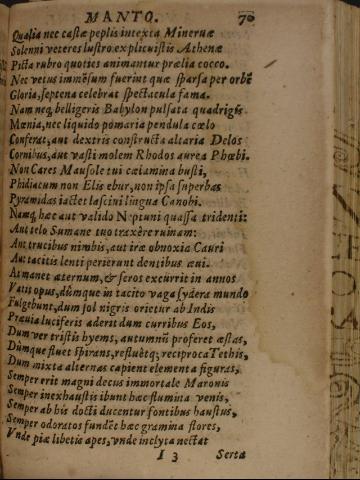 MANTO. 70
Qualia nec castæ peplis intexta Mineruæ
Solenni veteres lustro explicuistis Athenæ
Picta rubro quoties animantur prælia cocco.
Nec vetus immēsum fuerint quæ sparsa per orbē
Gloria, septena celebrat spectacula fama.
Nam neq; belligeris Babylon pulsata quadrigis
Mœnia, nec liquido pomaria pendula cœlo
Conferat, aut dextris constructa altaria Delos
Cornibus, aut vasti molem Rhodos aurea Phœbi.
Non Cares Mausole tui cælamina busti,
Phidiacum non Elis ebur, non ipsa superbas
Pyramidas iactet lascini lingua Canobi.
Namq; hæc aut valido Neptuni quassa tridenti:
Aut telo Sumane tuo traxère ruinam:
Aut trucibus nimbis, aut iræ obnoxia Cauri
Aut tacitis lenti perierunt dentibus æui.
At manet æternum, & seros excurrit in annos
Vatis opus, dūmque in tacito vaga sydera mundo
Fulgebunt, dum sol nigris orietur ab Indis
Præuia luciferis aderit dum curribus Eos,
Dum ver tristis hyems, autumnū proferet æstas,
Dūmque fluet spirans, refluētq; reciproca Tethis,
Dum mixta alternas capient elementa figuras,
Semper erit magni decus immortale Maronis
Semper inexhaustis ibunt hæc flumina venis,
Semper ab his docti ducentur fontibus haustus,
Semper odoratos fundēt hæc gramina flores,
Vnde piæ libetis apes, vnde inclyta nectat
I 3 Serta